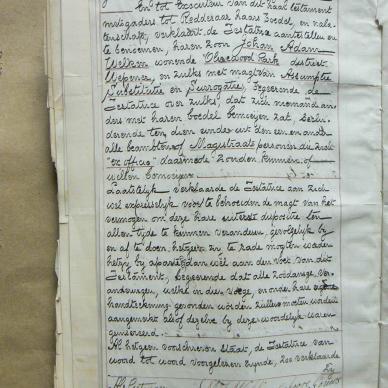 En tot Executeur van dit haar testament
mitsgaders tot Redderaar haars boedel en nala-
tenschap, verklaart de Testatrice aantestellen en
te benoemen, haren zoon Johan Adam
Welkem wonende Park district
Wepener, en zulks met magt van Assumptie
Substitutie en Surrogatie, begeerende de
Testatrice over zulks, dat zich niemand an-
ders met haren boedel bemoeyen zal, secun-
derende ten dien einde uit den een en anderen
alle beambten of Magistraats personen die zich
"ex officio" daarmede zouden kunnen of
willen bemoeyen.
Laatstelijk verklaarde de Testatrice aan zich
wel expresselyk voor te behouden de magt van het
vermogen om deze hare uiterste dispositie ten
allen tyde te kunnen veranderen, gevolgelyk by
en af te doen, hetgeen zy te rade mogten worden
hetzy by apart en dan wel aan den voet van dit
Testament, begeerende dat alle zoodanige ver-
anderingen, welke in dier voege, en onder hare eigene
handteekening gevonden worden zullen moeten worden
aangemerkt alsof dezelve by deze woordelyk waren
geinsereerd.
Al hetgeen voorschreven staat, de Testatrice van
woord tot woord voorgelezen zynde, zoo verklaarde
Zy